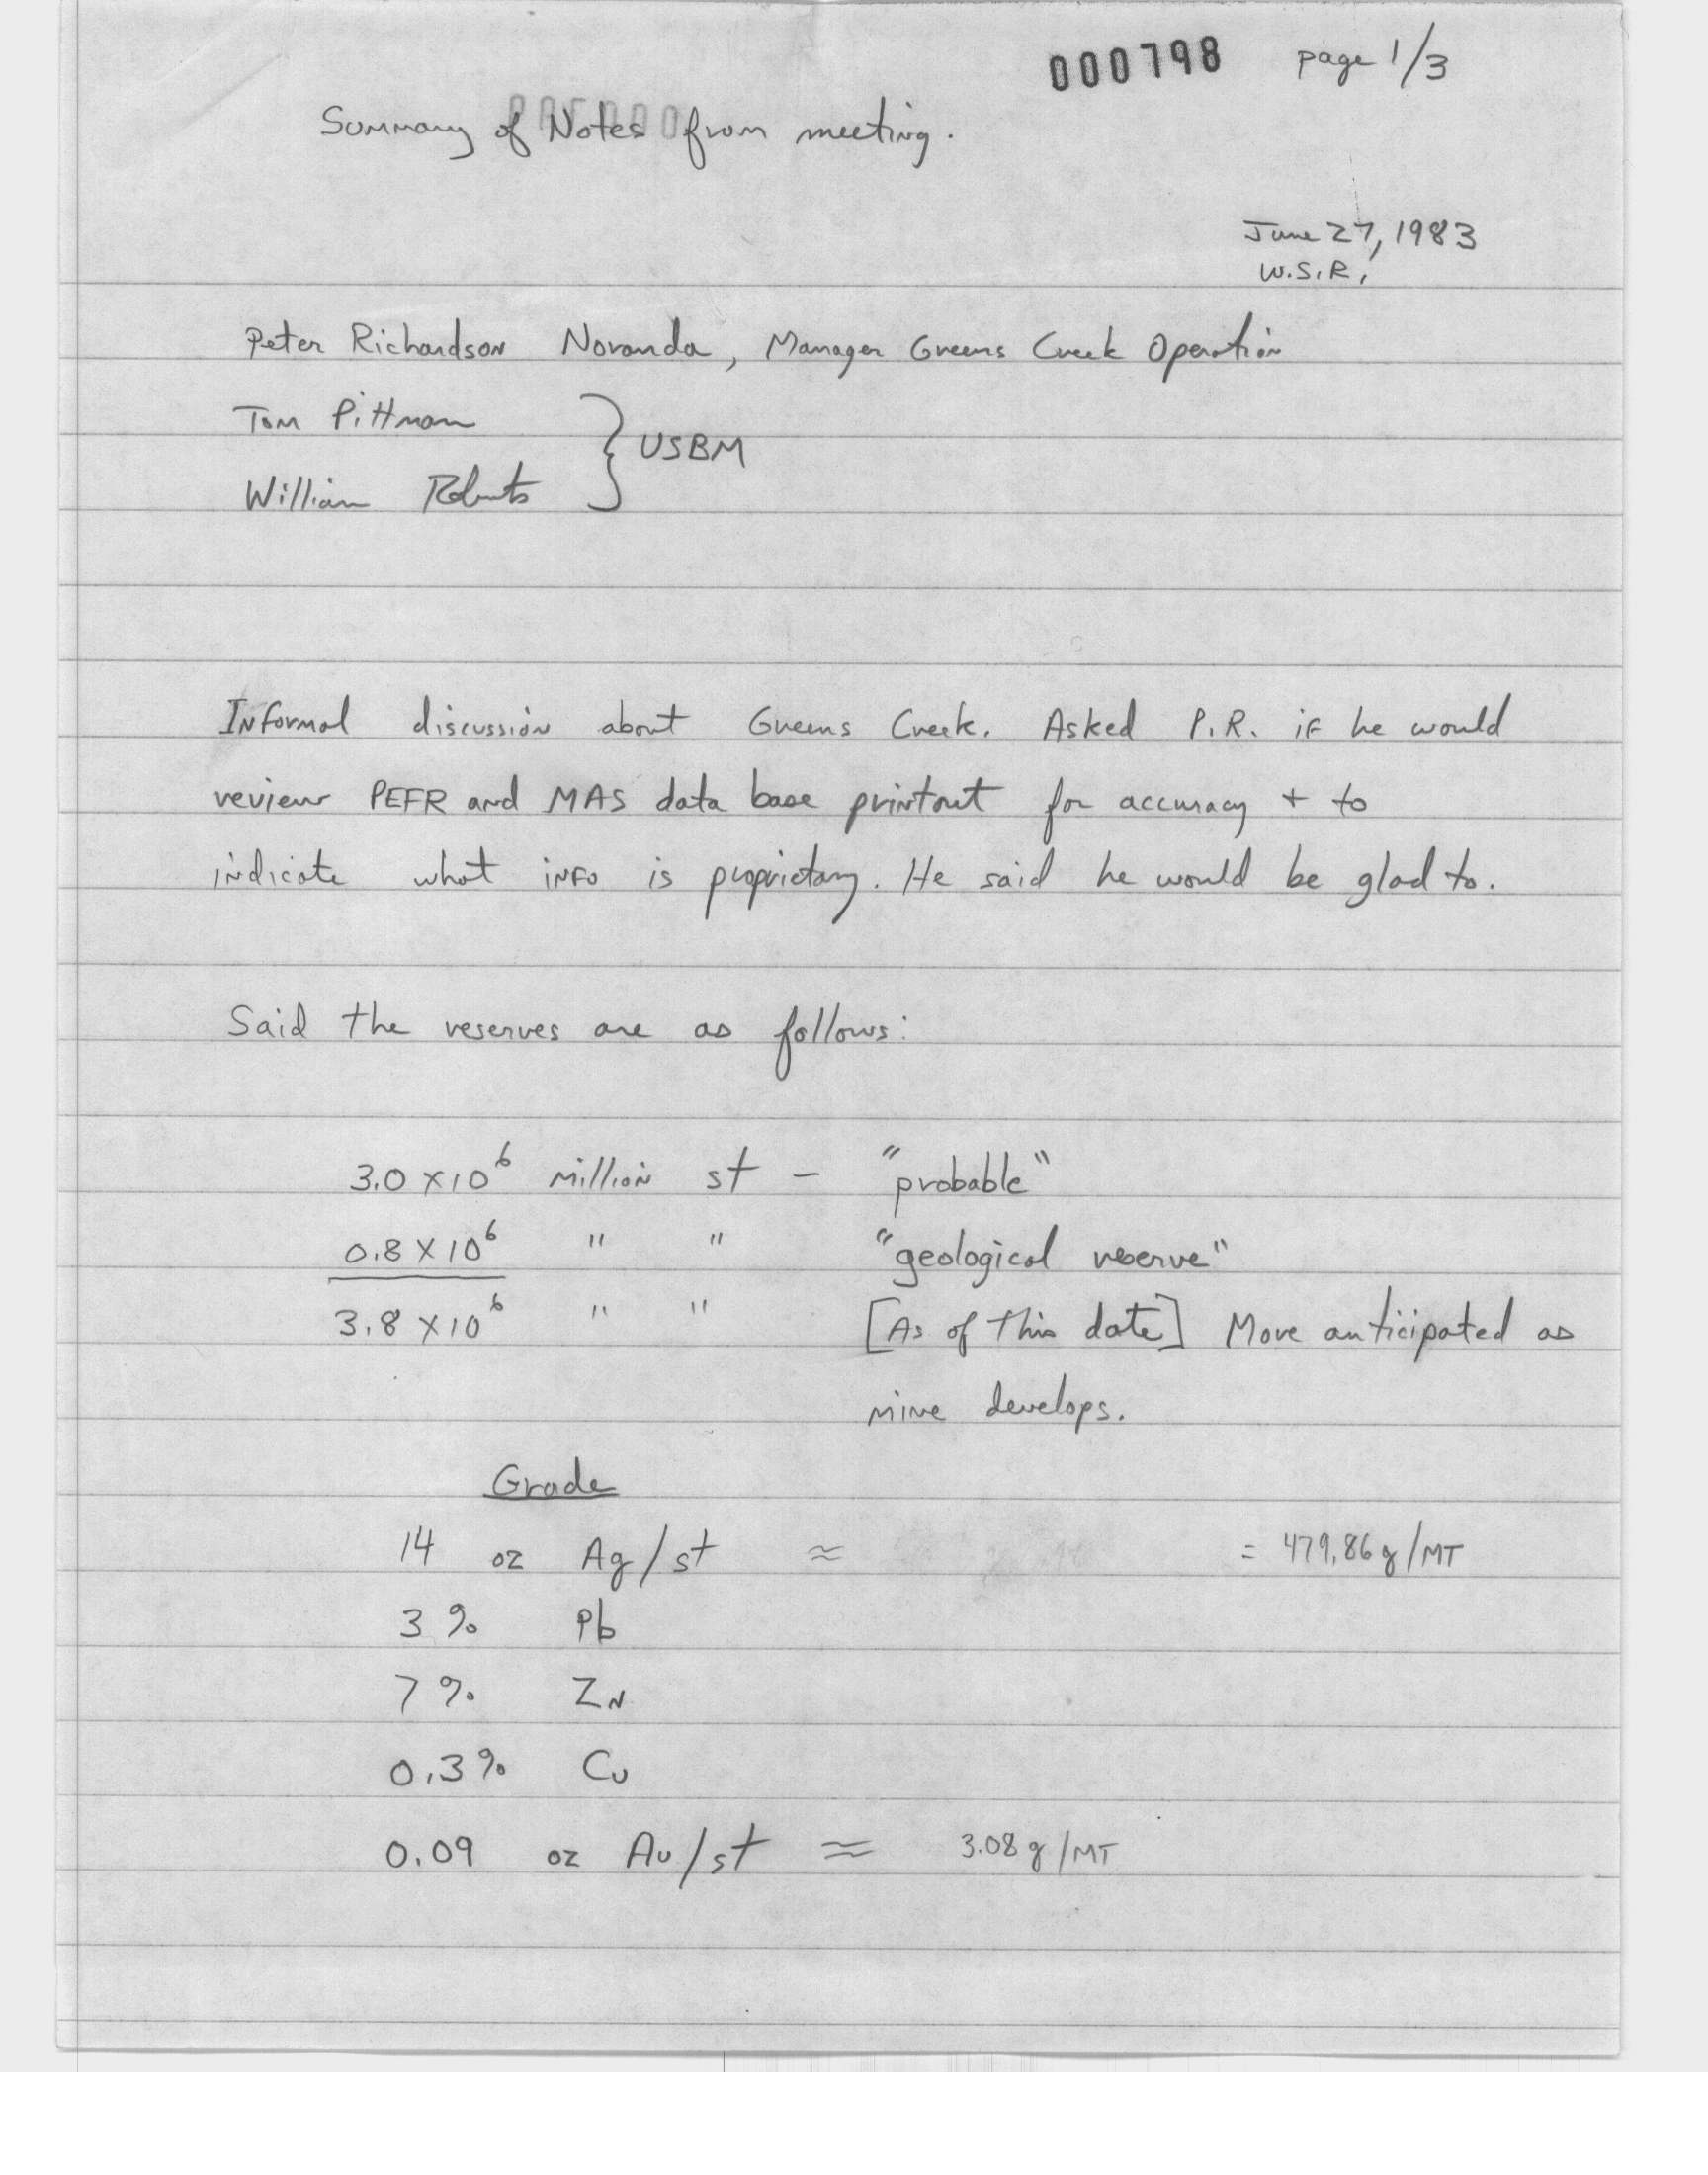 000798 page 1/3
Summary of Notes from meeting.
June 27, 1983
W.S.R.
Peter Richardson Noranda, Manager Greens Creek Operation
Tom Pittman
} USBM
William Roberts
Informal discussion about Greens Creek. Asked P.R. if he would
review PEFR and MAS data base printout for accuracy + to
indicate what info is proprietary. He said he would be glad to.
Said the reserves are as follows:
3.0 x 10⁶ million st - "probable"
0.8 x 10⁶ " " "geological reserve"
3.8 x 10⁶ " " [As of this date] More anticipated as
mine develops.
Grade
14 oz Ag/st ≈ = 479.86 g/MT
3 % Pb
7 % ZN
0.3 % Cu
0.09 oz Au/st ≈ 3.08 g/MT